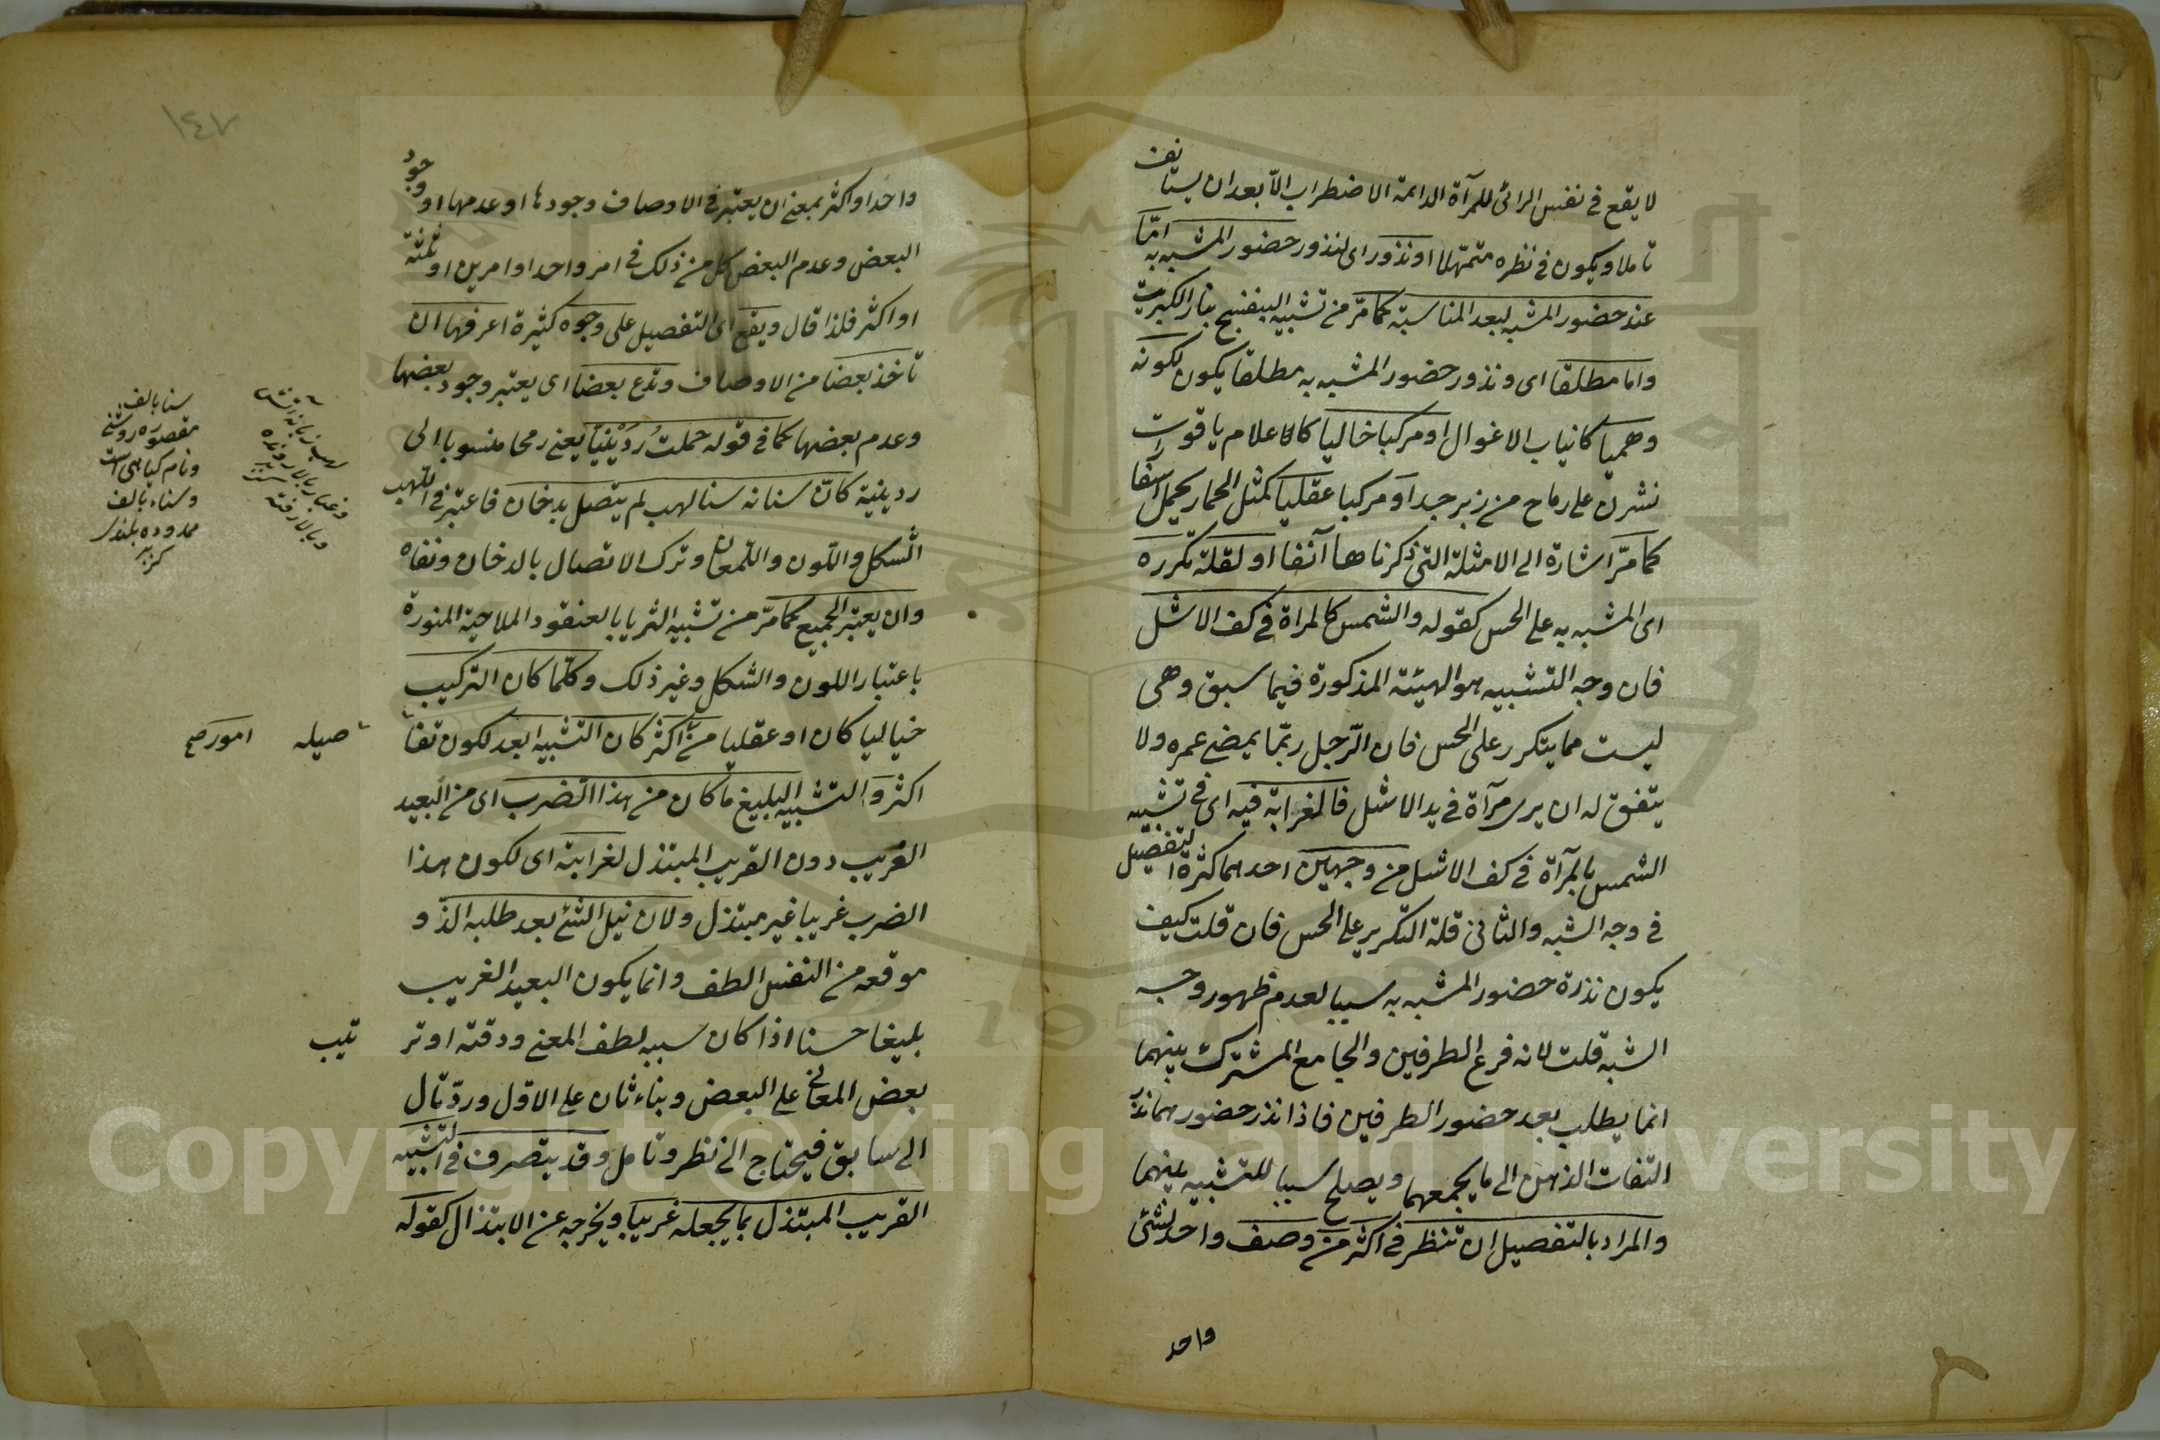 لا يقع في نفس الرائى للمرآة الدائمة الاضطراب الّا بعد ان يستانف
تاملا ويكون في نظره متمهّلا او نذور اى لنذور حضور المشبه به امّا
عند حضور المشبه لبعد المناسبة كما مرّ من تشبيه البنفسج بنار الكبريت
واما مطلقا اى ونذور حضور المشبه به مطلقا يكون لكونه
وهميا كانياب الاغوال او مركبا خاليا كالاعلام ياقوت
نشرن على رماح من زبرجد او مركبا عقليا كمثل الحمار يحمل اسفارا
كما مرّ اشارة الى الامثلة التى ذكرناها آنفا او لقلة تكرره
اى المشبه به على الحس كقوله والشمس كالمراة في كف الاشل
فان وجه التشبيه هو الهيئة المذكورة فيما سبق وهى
ليست مما يتكرر على الحس فان الرّجل ربّما يمضى عمره ولا
يتفق له ان يرى مرآة في يد الاشل فالغرابة فيه اى في تشبيه
الشمس بالمرآة في كف الاشل من وجهين احدهما كثرة التفصيل
في وجه الشبه والثانى قلة التكرير على الحس فان قلت كيف
يكون نذرة حضور المشبه به سببا لعدم ظهور وجه
الشبه قلت لانه فرع الطرفين والجامع المشترك بينهما
انما يطلب بعد حضور الطرفين فاذا نذر حضورهما نذر
التفات الذهن الى ما يجمعهما ويصلح سببا للتشبيه بينهما
والمراد بالتفصيل ان تنظر في اكثر من وصف واحد لشئ
واحد
١٤٧
واحد او اكثر بمعنى ان يعتبر في الاوصاف وجودها او عدمها او وجود
البعض وعدم البعض كل من ذلك في امر واحد او امرين او ثلثة
او اكثر فلذا قال ويقع اى التفصيل على وجوه كثيرة اعرفها ان
تاخذ بعضا من الاوصاف وتدع بعضا اى يعتبر وجود بعضها
وعدم بعضها كما في قوله حملت رُدَيْنِيّا يعنى رمحا منسوبا الى
ردينية كانّ سنانه سنا لهب لم يتصل بدخان فاعتبر في اللهب
الشكل واللون واللمعان وترك الاتصال بالدخان ونفاه
وان يعتبر الجميع كما مرّ من تشبيه الثريا بالعنقود الملاحية المنورة
باعتبار اللون والشكل وغير ذلك وكلّما كان التركيب
خياليا كان او عقليا من اكثر كان التشبيه ابعد لكون تفا
صيله
امور صح
اكثر والتشبيه البليغ ما كان من هذا الضرب اى من البعيد
الغريب دون القريب المبتذل لغرابته اى لكون هذا
الضرب غريبا غير مبتذل ولان نيل الشئ بعد طلبه الذّ و
موقعه من النفس الطف وانما يكون البعيد الغريب
بليغا حسنا اذا كان سببه لطف المعنى ودقته او تر
تيب
بعض المعانى على البعض وبناء ثان على الاوّل وردّ تال
الى سابق فيحتاج الى نظر وتامل وقد يتصرف في التشبيه
القريب المبتذل بما يجعله غريبا ويخرجه عن الابتذال كقوله
سنا بالف
مقصوره روشنى
ونام كياهى است
وسناء بالف
ممدوده بلندى
كزبر
لهب زبانه آتش
وغبار بالا رونده
وبالا رفته